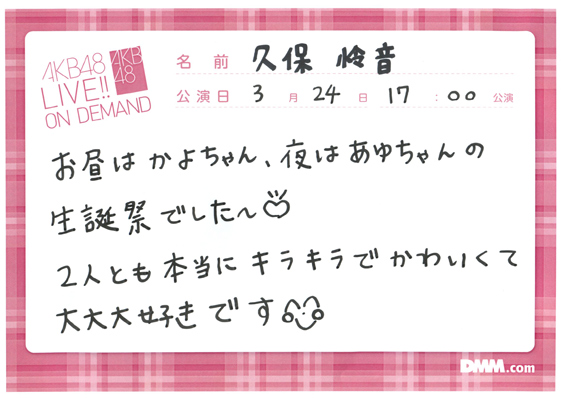 AKB48
LIVE!!
ON DEMAND
AKB
48
名前 久保 怜音
公演日 3月24日 17:00公演
お昼はかよちゃん、夜はあゆちゃんの
生誕祭でした〜
2人とも本当にキラキラでかわいくて
大大大好きです
DMM.com